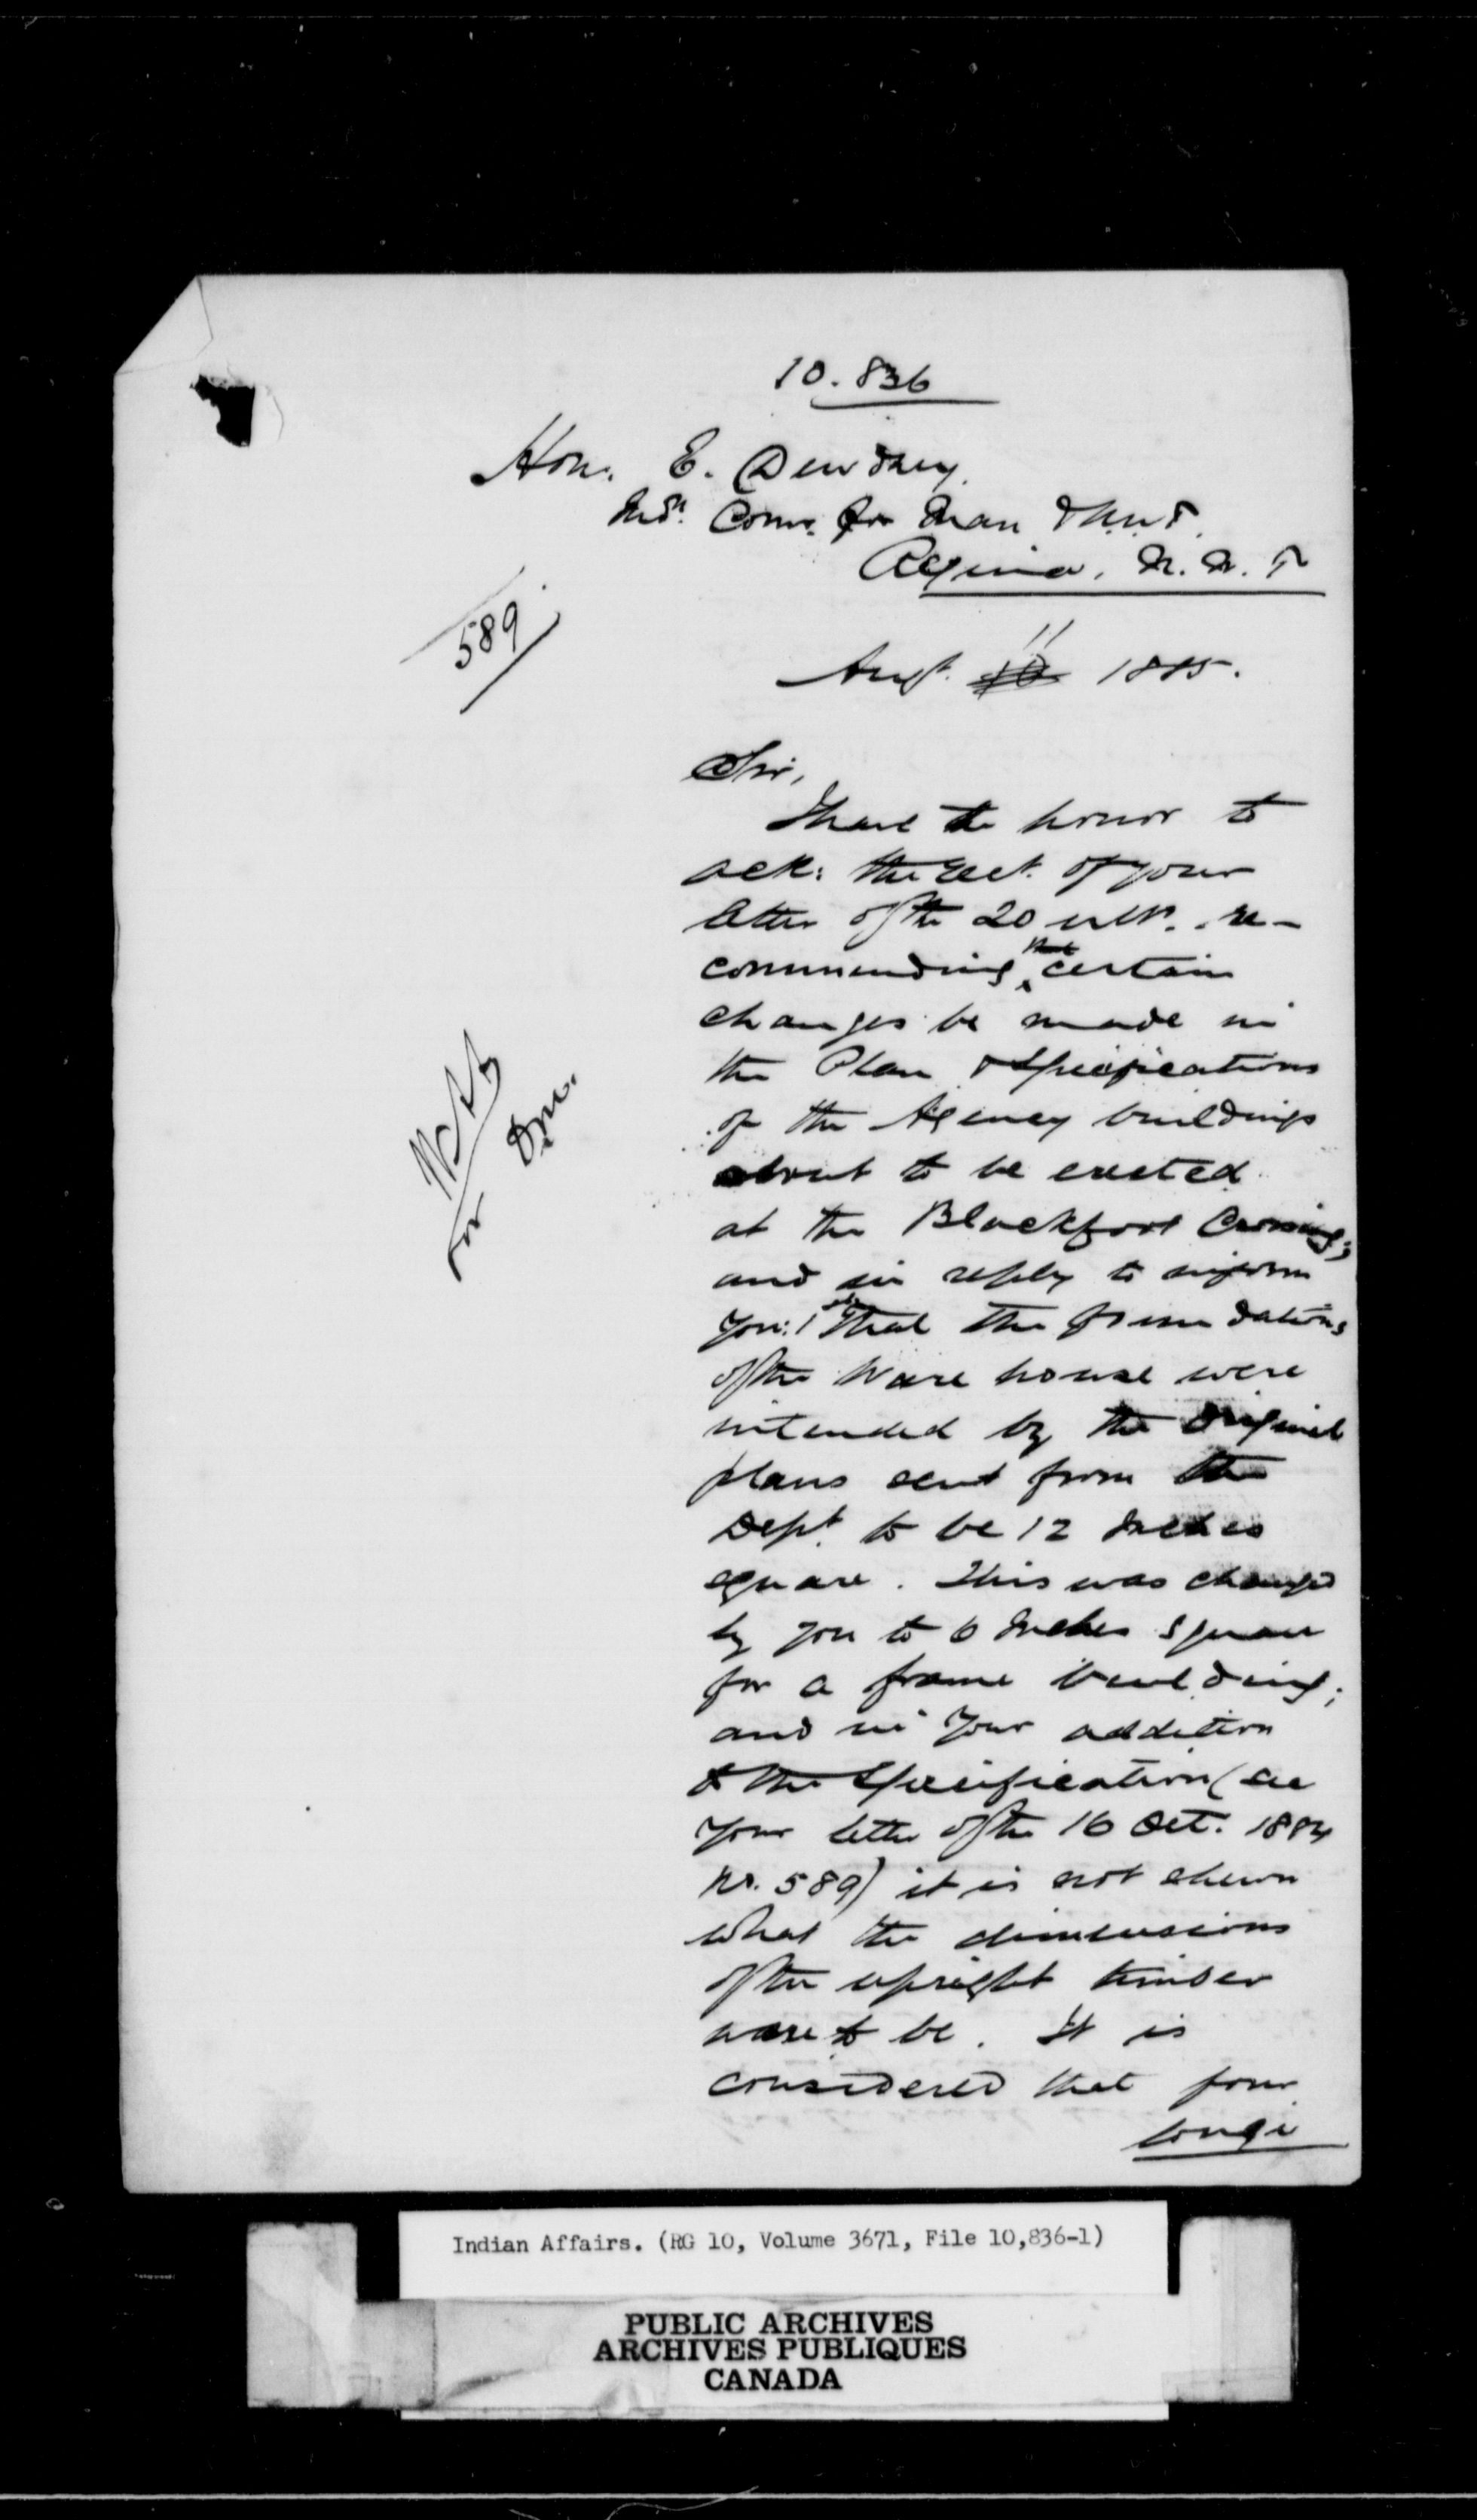 10.836
Hon. E. Dewdney.
Indn. Comr. for Man & N.W.T.
Regina, N.W.T
589
Augt. 10 11 1885.
Sir,
I have the honor to
ack: the rect. of your
letter of the 20 ulto. re-
commending that certain
changes be made in
the Plan & Specifications
of the Agency buildings
about to be erected
at the Blackfoot Crossing;
and in reply to inform
you: 1st That the foundations
of the Ware house were
intended by the original
plans sent from the
Dept. to be 12 Inches
square. This was changed
by you to 6 Inches square
for a frame building;
and in your addition
to the Specification (see
your letter of the 16 Oct. 1884
No. 589) it is not shewn
what the dimensions
of the upright timber
were to be. It is
considered that four
longi
Indian Affairs. (RG 10, Volume 3671, File 10,836-1)
PUBLIC ARCHIVES
ARCHIVES PUBLIQUES
CANADA